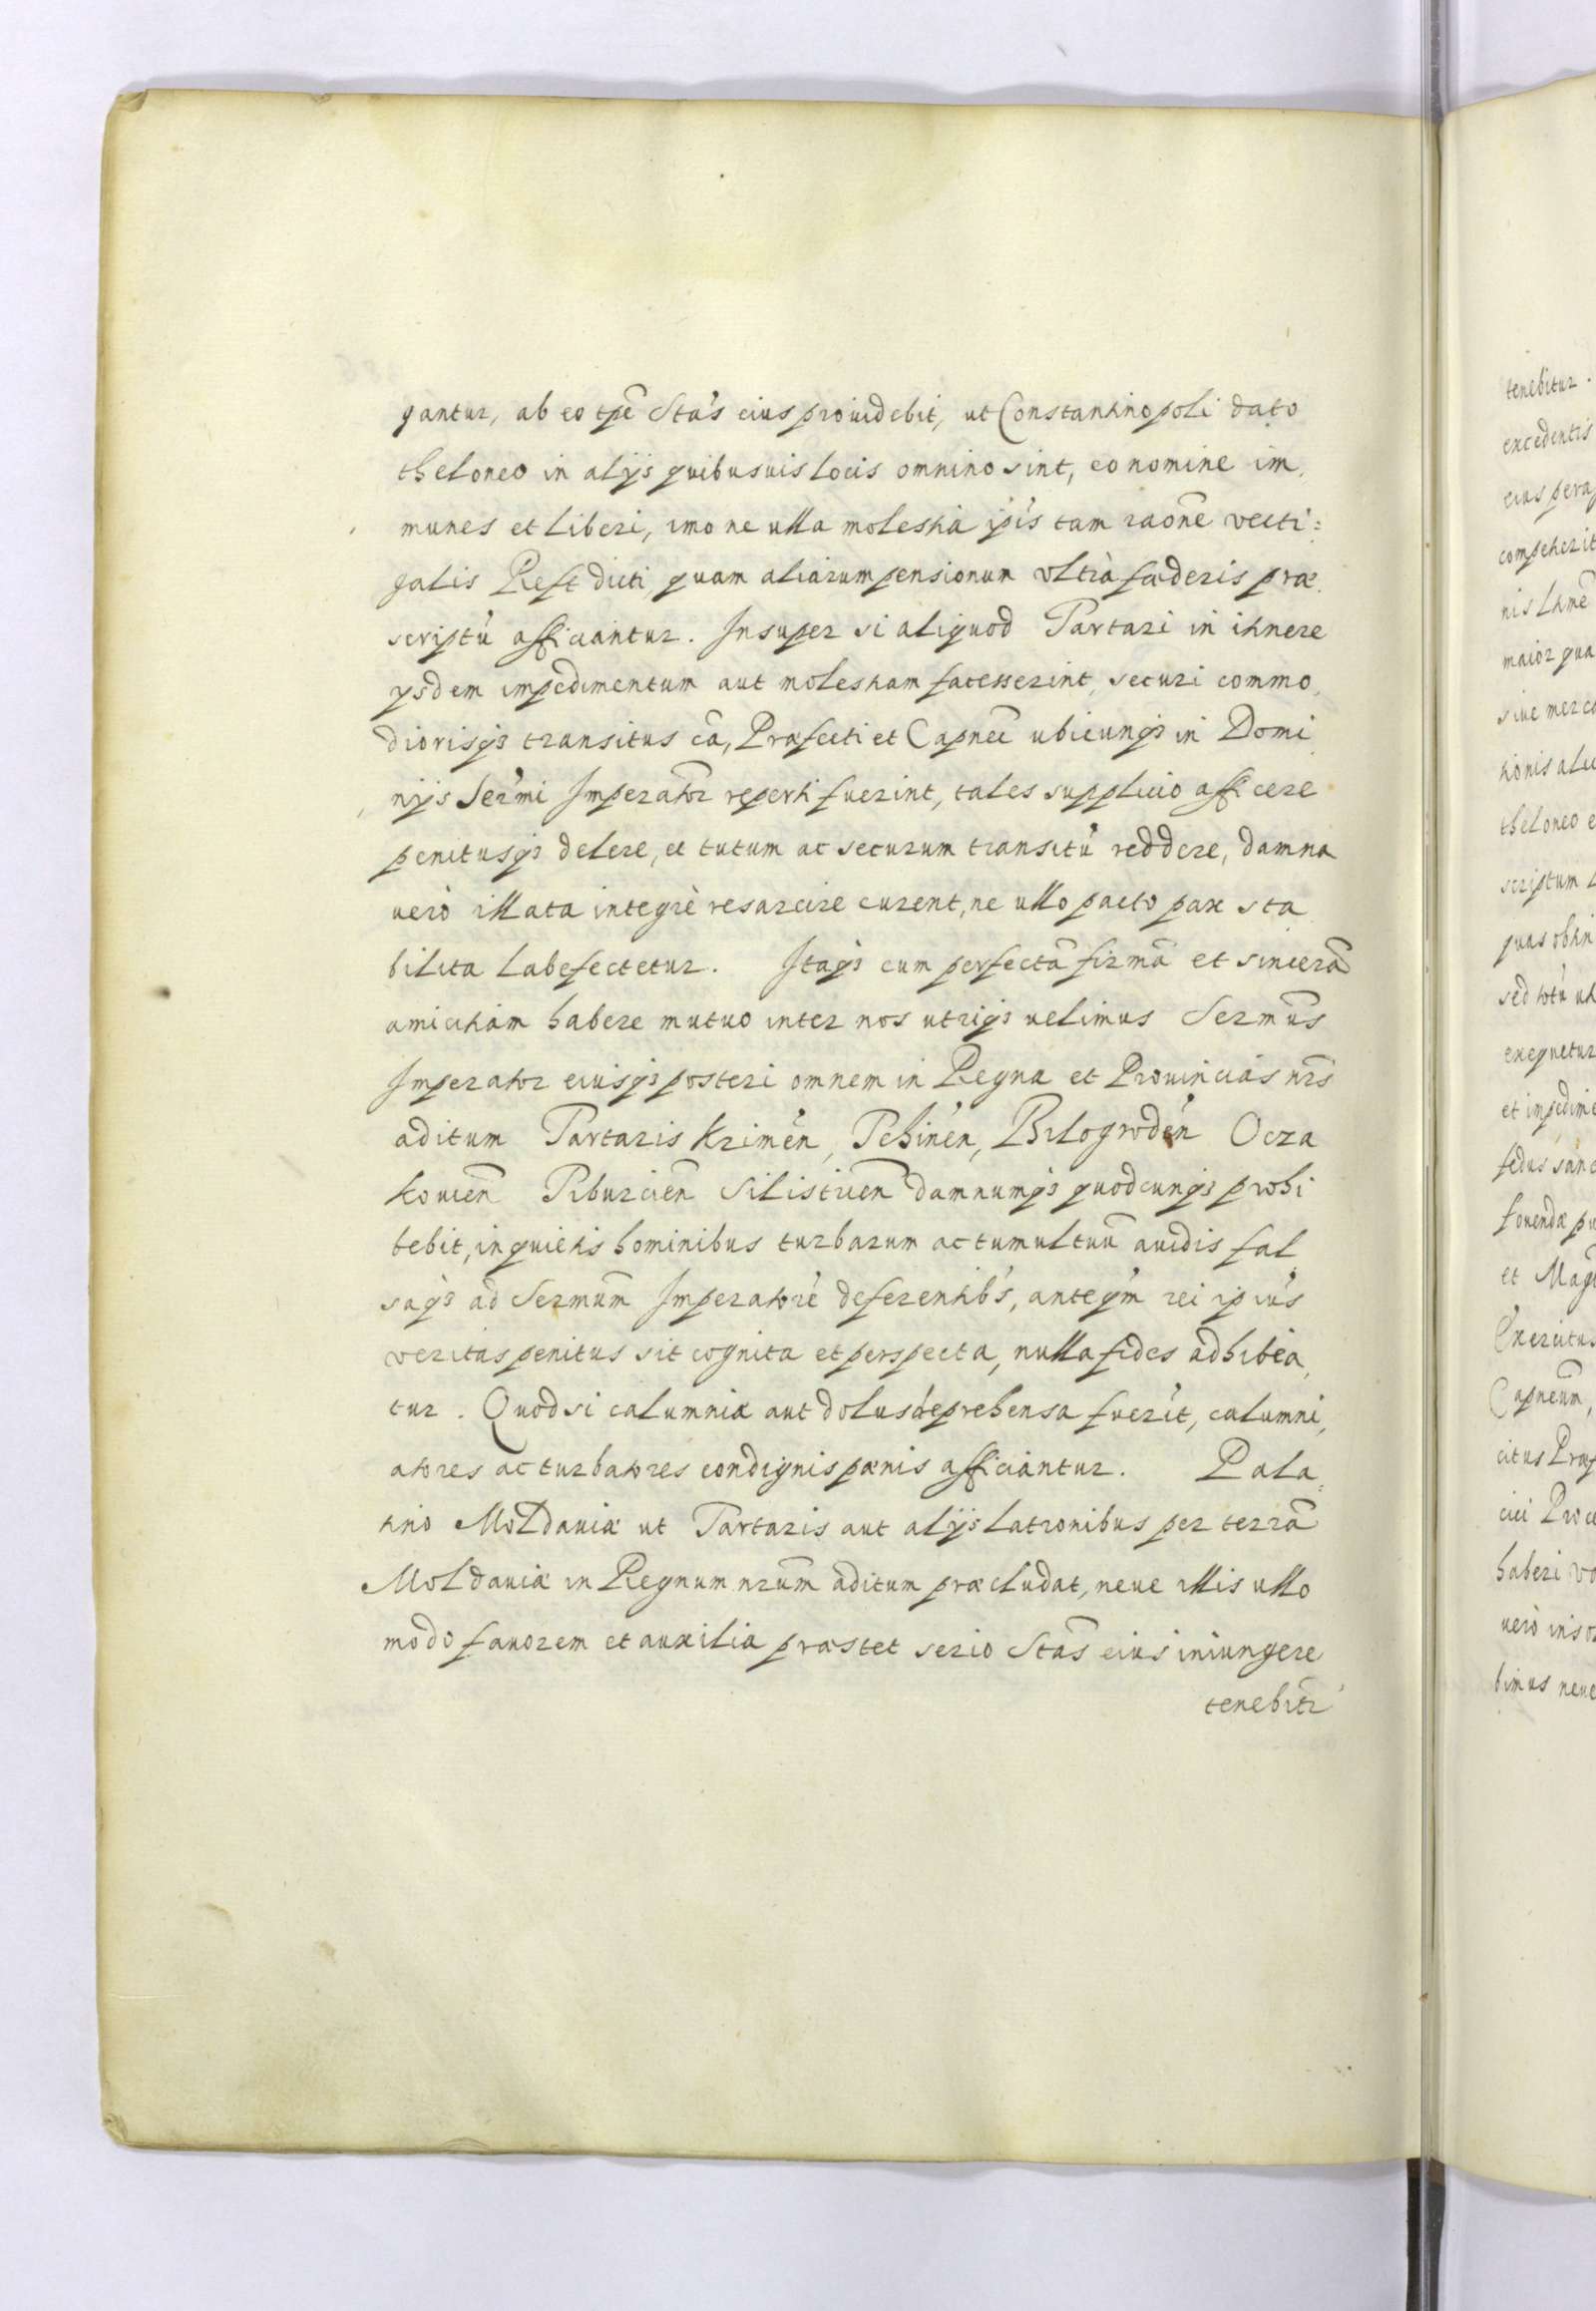 gantur, ab eo tpē Stas eius prouidebit, ut Constantinopoli dato
theloneo in alijs quibusuis locis omnino sint, eo nomine im,
munes et liberi, imo ne ulla molestia ipīs tam raōne vecti:
galis Reft dicti, quam aliarum pensionum vltrà fœderis præ,
scriptū afficiantur. Insuper si aliquod Tartari in itinere
ysdem impedimentum aut molestiam facesserint, securi commo,
diorisq3 transitus cā, Præfecti et Capnei ubicunq3 in Domi
nijs Sermi Imperator reperti fuerint, tales supplicio afficere
penitusq3 delere, et tutum ac securum transitū reddere, damna
uerò illata integrè resarcire curent, ne ullo pacto pax sta
bilita labefectetur. Itaq3 cum perfectā firmā et sincerā
amicitiam habere mutuo inter nos utriq3 uelimus Sermūs
Imperator eiusq3 posteri omnem in Regna et Prouincias nrās
aditum Tartaris Krimēn, Tehinēn, Bilogrodēn Ocza
kouiēn Tiburciēn Silistriēn damnumq3 quodcunq3 prohi
bebit, inquietis hominibus turbarum ac tumultuū auidis fal
saq3 ad Sermūm Imperatorē deferentibs, anteqm rei ipius
veritas penitus sit cognita et perspecta, nulla fides adhibea,
tur. Quodsi calumniæ aut dolus deprehensa fuerit, calumni,
atores ac turbatores condignis pœnis afficiantur. Pala,
tino Moldauiæ ut Tartaris aut alijs latronibus per terrā
Moldauiæ in Regnum nrūm aditum præcludat, neue illis ullo
modo fauorem et auxilia præstet serio Stās eius iniungere
tenebitr
tenebitur.
excedentis
eius pera
comperterit
nis
maior qua
siue merca
tionis
theloneo e
scriptum
quas obtin
sed
exequetur
et impedime
fedus sanc
fouendæ pu
et Mag
Exercitus
Capneum,
citus Præf
cici
haberi vo
uerò inso
bimus neue